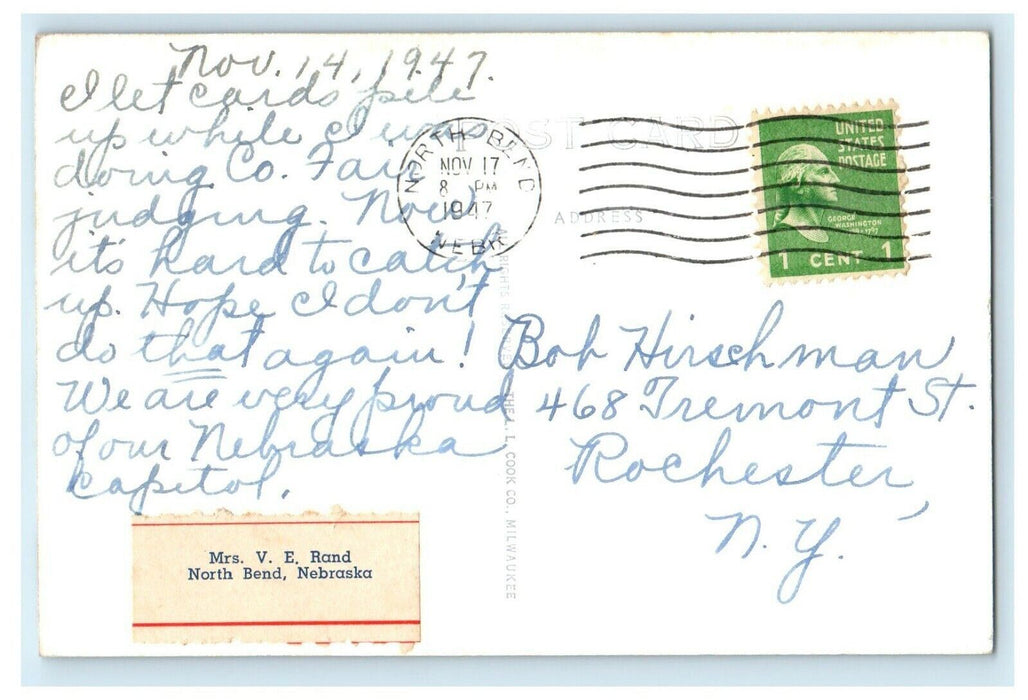 Nov. 14, 1947.
I let cards pile
up while I was
doing Co. Fair
judging. Now
it's hard to catch
up. Hope I don't
do that again!
We are very proud
of our Nebraska
Capitol.
Mrs. V. E. Rand
North Bend, Nebraska
POST CARD
NORTH BEND
NOV 17
8 PM
1947
NEBR
ADDRESS
UNITED
STATES
POSTAGE
GEORGE
WASHINGTON
1 CENT 1
THE L. L. COOK CO., MILWAUKEE
Bob Hirschman
468 Tremont St.
Rochester,
N. Y.